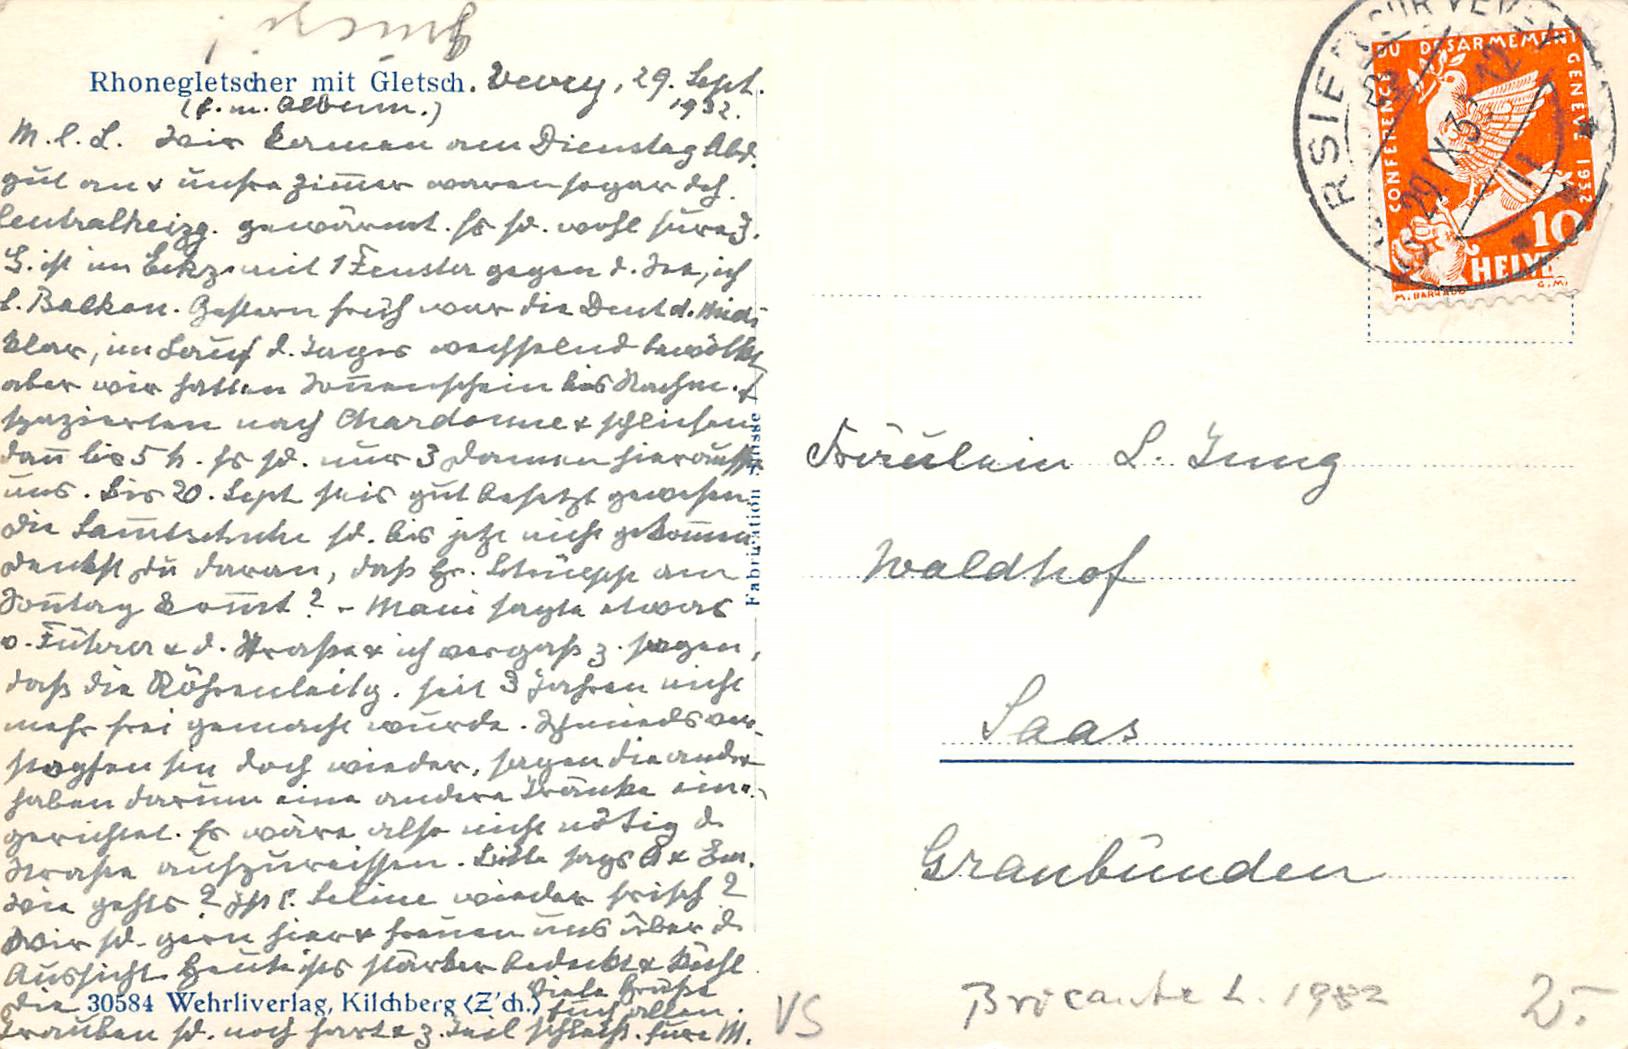 Rhonegletscher mit Gletsch. Vevey, 29. Sept.
(f. m. Album.) 1932.
M. l. L. Wir kamen am Dienstag Abd.
gut an & unsre Zimmer waren sogar dch.
Centralheizg. gewärmt. Es sd. wohl eure Z.
G. ist im Eckz. mit 1 Fenster gegen d. See, ich
Balkon. Gestern früh war die Dent d. Midi
klar, im Lauf d. Tages wechselnd bewölkt
aber wir hatten Sonnenschein bis Nachm. &
spazierten nach Chardonne & schliefen
dann bis 5 h. Es sd. nur 3 Damen hier ausser
uns. Bis 20. Sept seis gut besetzt gewesen.
Die Samtschuhe sd. bis jetzt nicht gekommen
Denkst Du daran, daß Hr. am
Sonntag kommt? – sagte etwas
v. Führer & d. Straße & ich vergaß z. sagen,
daß die Röhrenleitg. seit 3 Jahren nicht
mehr frei gemacht wurde. Schmieds ver-
stopfen sie doch wieder, sagen die andern
haben darum eine andere Tränke ein-
gerichtet. Es wäre also nicht nötig d.
Straße aufzureissen. Bitte sags A &
Wie gehts? Ist l. Celine wieder frisch?
Wir sd. gern hier & freuen uns über d.
Aussicht. Heute ists stärker bedeckt & kühl.
Die 30584 Wehrliverlag, Kilchberg (Z'ch.) Viele Grüße
Euch allen.
Trauben sd. noch hart & z. Teil schlecht. Eure M.
Fabrication Suisse
CONFERENCE DU DESARMEMENT GENEVE 1932
10
HELVE
RSIE SUR VEVEY
29.IX.32
Fräulein L. Jung
Waldhof
Saas
Graubünden
VS
Brocante L. 1982
2.-